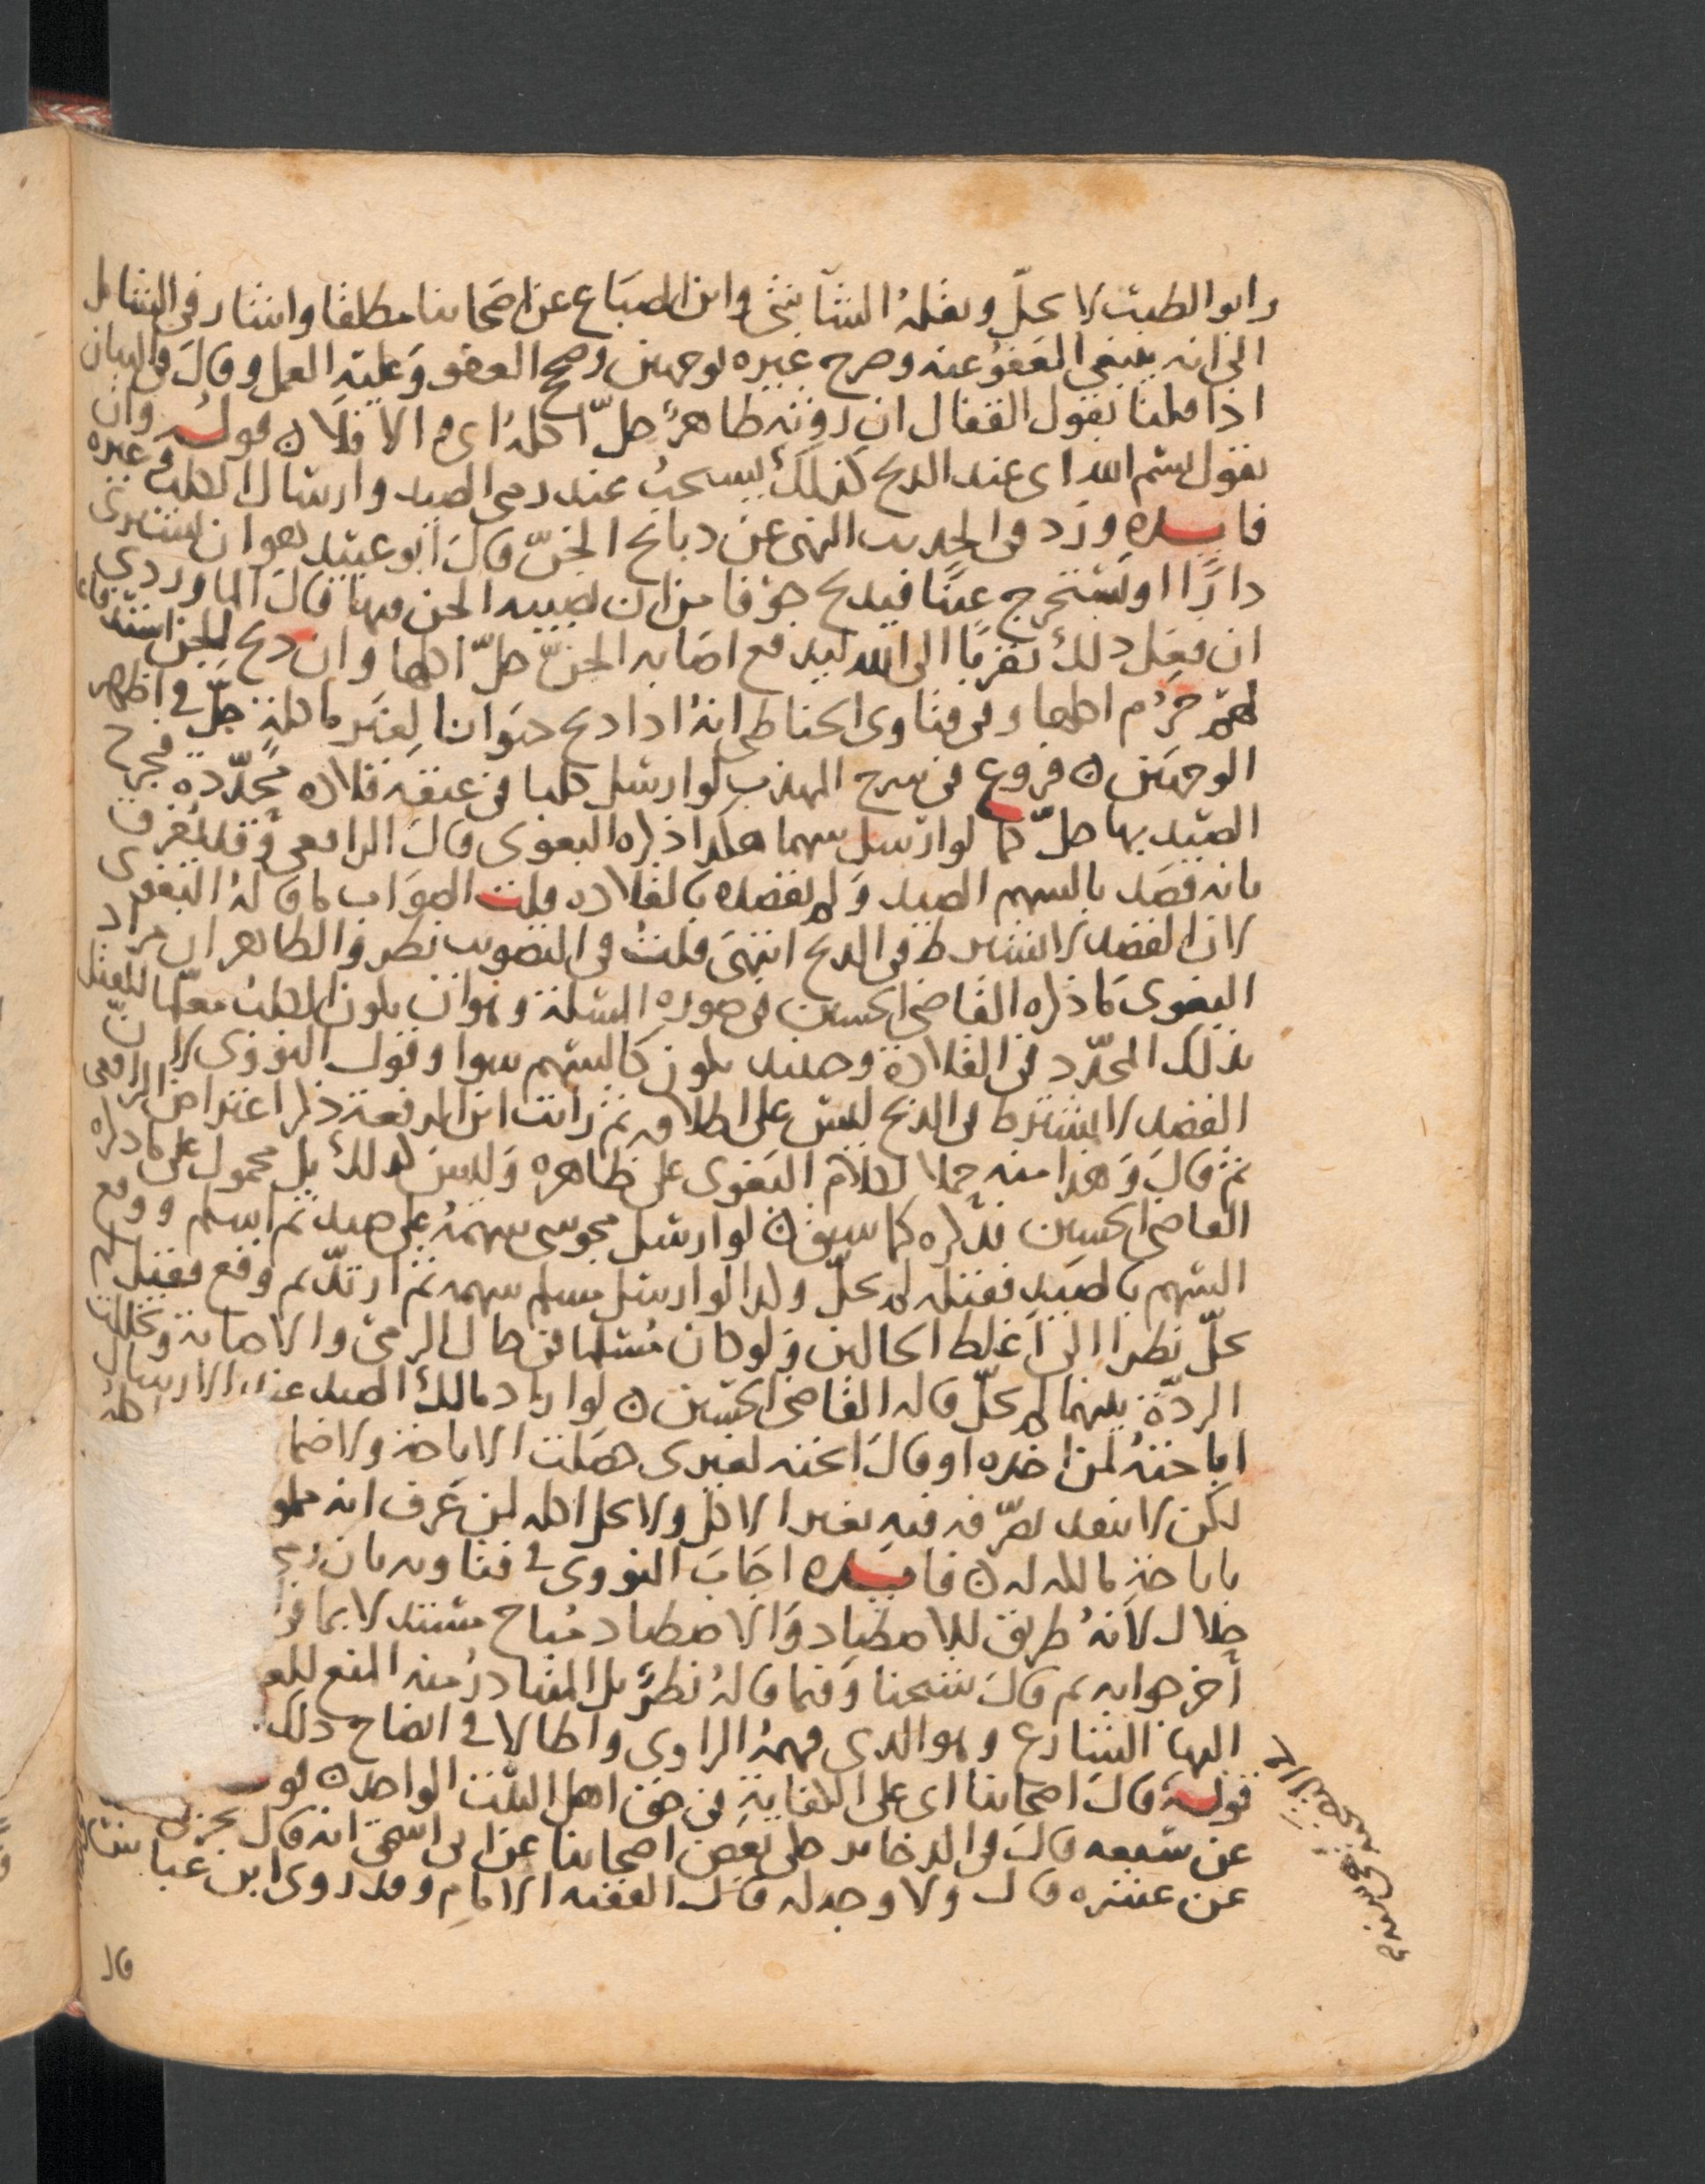 وابو الطيب لا يحل ونقله الشاشي وابن الصباغ عن اصحابنا مطلقا واشار في الشامل
الى انه ينبغي العفو عنه وخرج غيره لوجهين وصحح العفو وعليه العمل وقال في البيان
اذا قلنا بقول القفال ان روثه طاهر حل اكله اى والا فلا ن قوله وان
يقول بسم الله اى عند الذبح كذلك يستحب عند رمى الصيد وارسال الكلب وغيره
فايده ورد في الحديث النهى عن ذبايح الجن قال ابو عبيد هو ان يشترى
دارا او يستخرج عينا فيذبح خوفا من ان تصيبه الجن فيها قال الماوردي
ان فعل ذلك تقربا الى الله ليدفع اصابه الجن حل اكلها وان ذبح للجن استدفاعا
لهم حرم اكلها وفي فتاوى الحناطي انه اذا ذبح حيوانا لغير ماكلة حل في اظهر
الوجهين ن فروع في شرح المهذب لو ارسل كلبا في عنقه قلاده محدده فجرح
الصيد بها حل كما لو ارسل سهما هكذا ذكره البغوى قال الرافعى وقد يفرق
بانه قصد بالسهم الصيد ولم يقصده بالقلاده قلت الصواب ما قاله البغوى
لان القصد لا يشترط في الذبح انتهى قلت في التصويب نظر والظاهر ان مراد
البغوى ما ذكره القاضي الحسين في صوره المسلة وهو ان يكون الكلب معلما للقتل
بذلك المحدد في القلادة وحينئد يكون كالسهم سوا وقول النووى لان
القصد لا يشترط في الذبح ليس على اطلاقه ثم رايت ابن الرفعة ذكر اعتراض الرافعى
ثم قال وهذا منه حملا لكلام البغوى على ظاهره وليس كذلك بل محمول على ما ذكره
القاضي الحسين فذكره كما سبق ن لو ارسل مجوسى سهمه على صيد ثم اسلم ووقع
السهم بالصيد فقتله لم يحل وكذا لو ارسل مسلم سهمه ثم ارتد ثم وقع فقتل لم
يحل نظرا الى اغلظ الحالين ولو كان مسلما في حال الرمي والاصابة وتخللت
الردة بينهما لم يحل قاله القاضي الحسين ن لو اراد مالك الصيد عند الارسال
اباحته لمن اخذه او قال ابحته لغيرى حصلت الاباحة ولا ضما
لكن لا ينفد تصرفه فيه بغير الاكل ولا يحل اكله لمن عرف انه مملو
باباحة مالكه له ن فايده اجاب النووى في فتاويه بان رمى
حلال لانه طريق للاصطياد والاصطياد مباح مستند لا بما
اخر جوابه ثم قال شيخنا وفيما قاله نظر بل المتبادر منه المنع
اليها الشارع وهو الذى فهمه الراوى واطالا في ايضاح ذلك
قوله قال اصحابنا اى على الكفاية في حق اهل البيت الواحد ن قو
عن سبعه قال في الذخاير حكى بعض اصحابنا عن ابى اسحق انه قال يجزى
عن عشره قال ولا وجه له قال الفقيه الامام وقد روى ابن عباس
قال